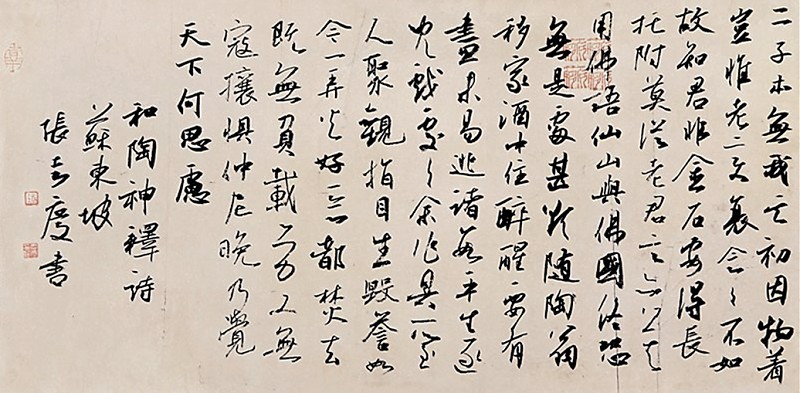 二子本無我其初因物着
豈惟老變衰念々不如
故知君非金石安得長
托附莫從老君言亦莫
用佛語仙山與佛國終恐
無是處甚欲随陶翁
移家酒中住醉醒要有
盡未易逃諸數平生逐
兒戲處々余作具所至
人聚觀指目生毀譽如
今一弄火好惡都焚去
既無負載勞又無
寇攘懼仲尼晚乃覺
天下何思慮
和陶神釋詩
蘇東坡
張度書